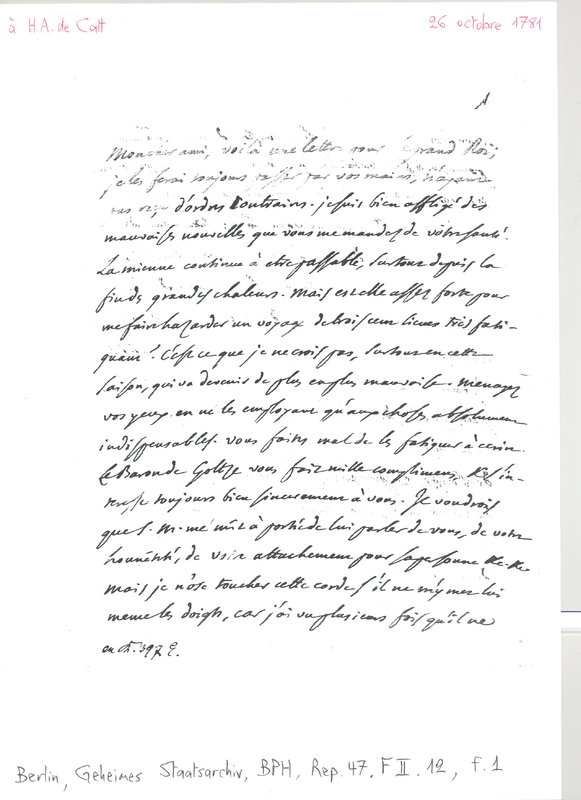 à H.A. de Catt
26 octobre 1781
Mon cher ami, voilà une lettre pour le grand Roi;
je les ferai toujours passer par vos mains, n'ayant
pas reçu d'ordres contraires. je suis bien affligé des
mauvaises nouvelles que vous me mandez de vôtre santé.
La mienne continue à etre passable, surtout depuis la
fin des grandes chaleurs. Mais est elle assez forte pour
me faire hazarder un voyage de trois cent lieues très fati-
quant? C'est ce que je ne crois pas, surtout en cette
saison, qui va devenir de plus en plus mauvaise. Menagez
vos yeux en ne les employant qu'aux choses absolument
indispensables. vous faites mal de les fatiguer à écrire.
Le Baron de Goltze vous fait mille complimens, & s'in-
teresse toujours bien sincerement à vous. Je voudrois
que S. M. me mit à portée de lui parler de vous, de votre
honnêteté, de votre attachement pour sa personne &c &c
mais je n'ose toucher cette corde s'il ne m'y met lui
meme les doigts, car j'ai vu plusieurs fois qu'il ne
Berlin, Geheimes Staatsarchiv, BPH, Rep. 47, F II. 12, f. 1